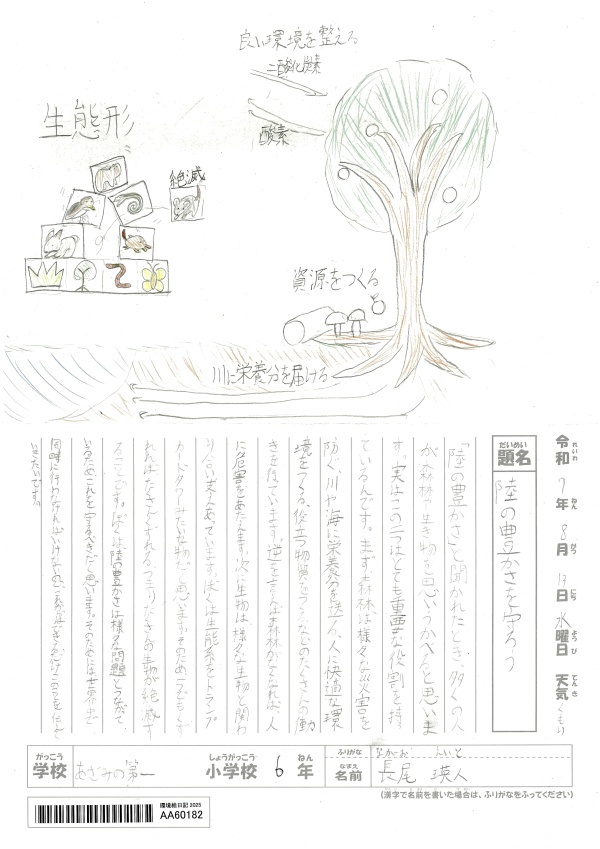 良い環境を整える
二酸化炭素
酸素
生態形
絶滅
資源をつくる
川に栄養分を届ける
令和 7年 8月 13日 水曜日 天気 くもり
れいわ ねん がつ にち ようび てんき
だいめい
題名 陸の豊かさを守ろう
「陸の豊かさ」と聞かれたとき、多くの人
が森林や生き物を思いうかべると思いま
す。実はこの二つはとても重要な役割を持っ
ているんです。まず、森林は様々な災害を
防ぐ、川や海に栄養分を送る、人に快適な環
境をつくる、役立つ物資をつくるなどのたくさんの働
きを持っています。逆を言えば森林がなくなれば、人
に危害をあたえます。次に生物は様々な生物と関わ
り合い支えあっています。ぼくは生態系をトランプ
カードタワーみたいな物だと思います。そのため一つでもくず
れれば くずれる、つまりたくさんの動物が絶滅す
ることです。ぼくは陸の豊かさは様々な問題とつながって
いるためこれを守るべきだと思います。そのためには世界中で
同時に行わなければいけない できるだけこのことを伝えて
いきたいです。
がっこう しょうがっこう ねん ふりがな ながお えいと
学校 あざみの第一 小学校 6年 なまえ 名前 長尾 瑛人
(漢字で名前を書いた場合は、ふりがなをふってください)
環境絵日記 2025
AA60182